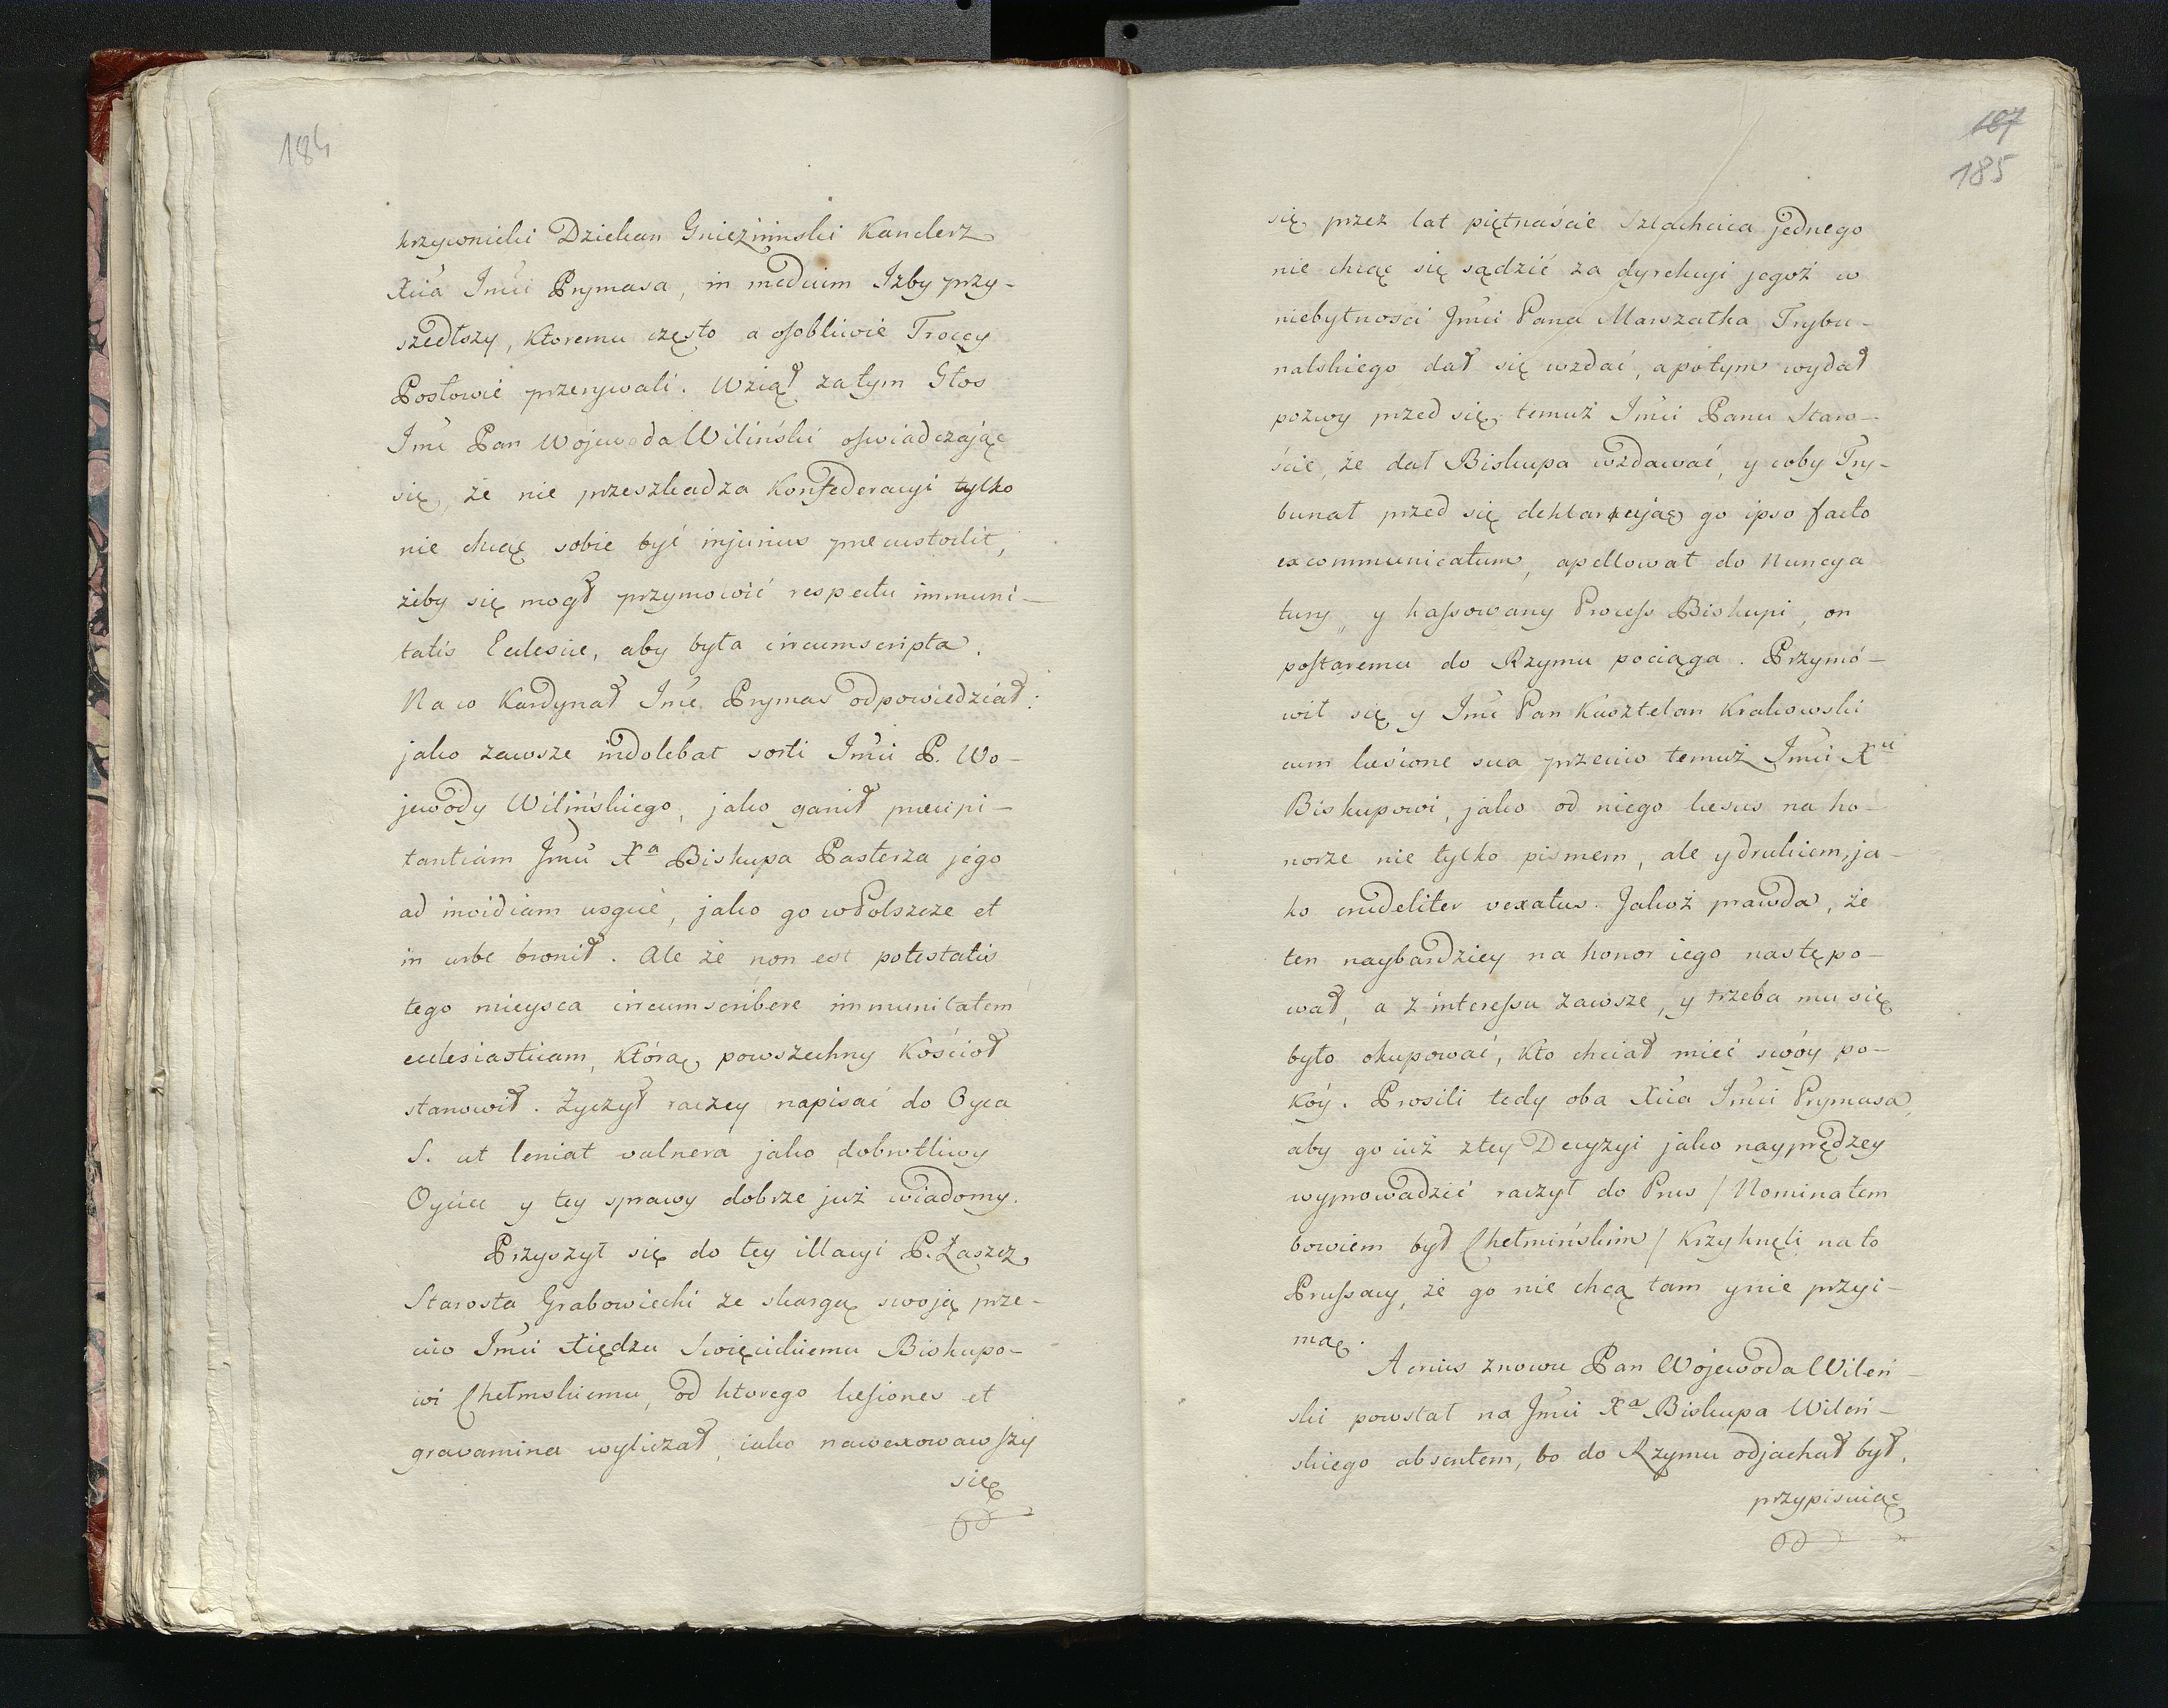 184
krzywnicki Dziekan Gnieźninski Kanclerz
Xcia Jmci Prymasa, in medium Izby przy-
szedłszy, ktoremu często a osobliwie Troccy
Posłowie przerywali. Wziął zatym Głos
Jmć Pan Wojewoda Wiliński oswiadczając
się, że nie przeszkadza Konfederacyi tylko
nie chcąc sobie być injurius præcustodit,
żeby się mogł przymowić respectu immuni-
tatis Ecclesiæ, aby była circumscripta.
Na co Kardynał Jmć Prymas odpowiedział:
jako zawsze indolebat sorti Jmci P. Wo-
jewody Wilińskiego, jako ganił præcipi-
tantiam Jmci Xa Biskupa Pasterza jego
ad invidiam usque, jako go w Polszcze et
in urbe bronił. Ale że non est potestatis
tego mieysca circumscribere immunitatem
ecclesiasticam, którą powszechny Kościoł
stanowił. Życzył raczey napisać do Oyca
S. ut leniat vulnera jako dobrotliwy
Oyciec y tey sprawy dobrze już wiadomy.
Przyszył się do tey illacyi P. Łaszcz,
Starosta Grabowiecki ze skargą swoją prze-
ciw Jmci Xiędzu Swięcickiemu Biskupo-
wi Chełmskiemu, od ktorego læsiones et
gravamina wyliczał, jako nawexowawszy
się
187
185
się przez lat piętnaście Szlachcica jednego
nie chcąc się sądzić za dyrekcyi jegoż w
niebytnosci Jmci Pana Marszałka Trybu-
nalskiego dał się wzdać, a potym wydał
pozwy przed się temuż Jmci Panu Staro-
ście, że dał Biskupa wzdawać, y coby Try-
bunał przed się deklarując go ipso facto
excommunicatum, apellował do Nuncya
tury, y kassowany Process Biskupi, on
postaremu do Rzymu pociąga. Przymó-
wił się y Jmć Pan Kasztelan Krakowski
cum læsione sua przeciw temuż Jmci Xu
Biskupowi, jako od niego læsus na ho-
norze nie tylko pismem, ale y drukiem, ja-
ko crudeliter vexatus. Jakoż prawda, że
ten naybardziey na honor iego następo-
wał, a z interessu zawsze, y trzeba mu się
było okupować, kto chciał mieć swóy po-
kóy. Prosili tedy oba Xcia Jmci Prymasa,
aby go iuż z tey Decyzyi jako nayprędzey
wyprowadzić raczył do Prus / Nominatem
bowiem był Chełmińskim / Krzyknęli na to
Prussacy, że go nie chcą tam y nie przyi-
mą.
Acrius znowu Pan Wojewoda Wileń-
ski powstał na Jmci Xa Biskupa Wileń-
skiego absentem, bo do Rzymu odjachał był,
przypisuiąc